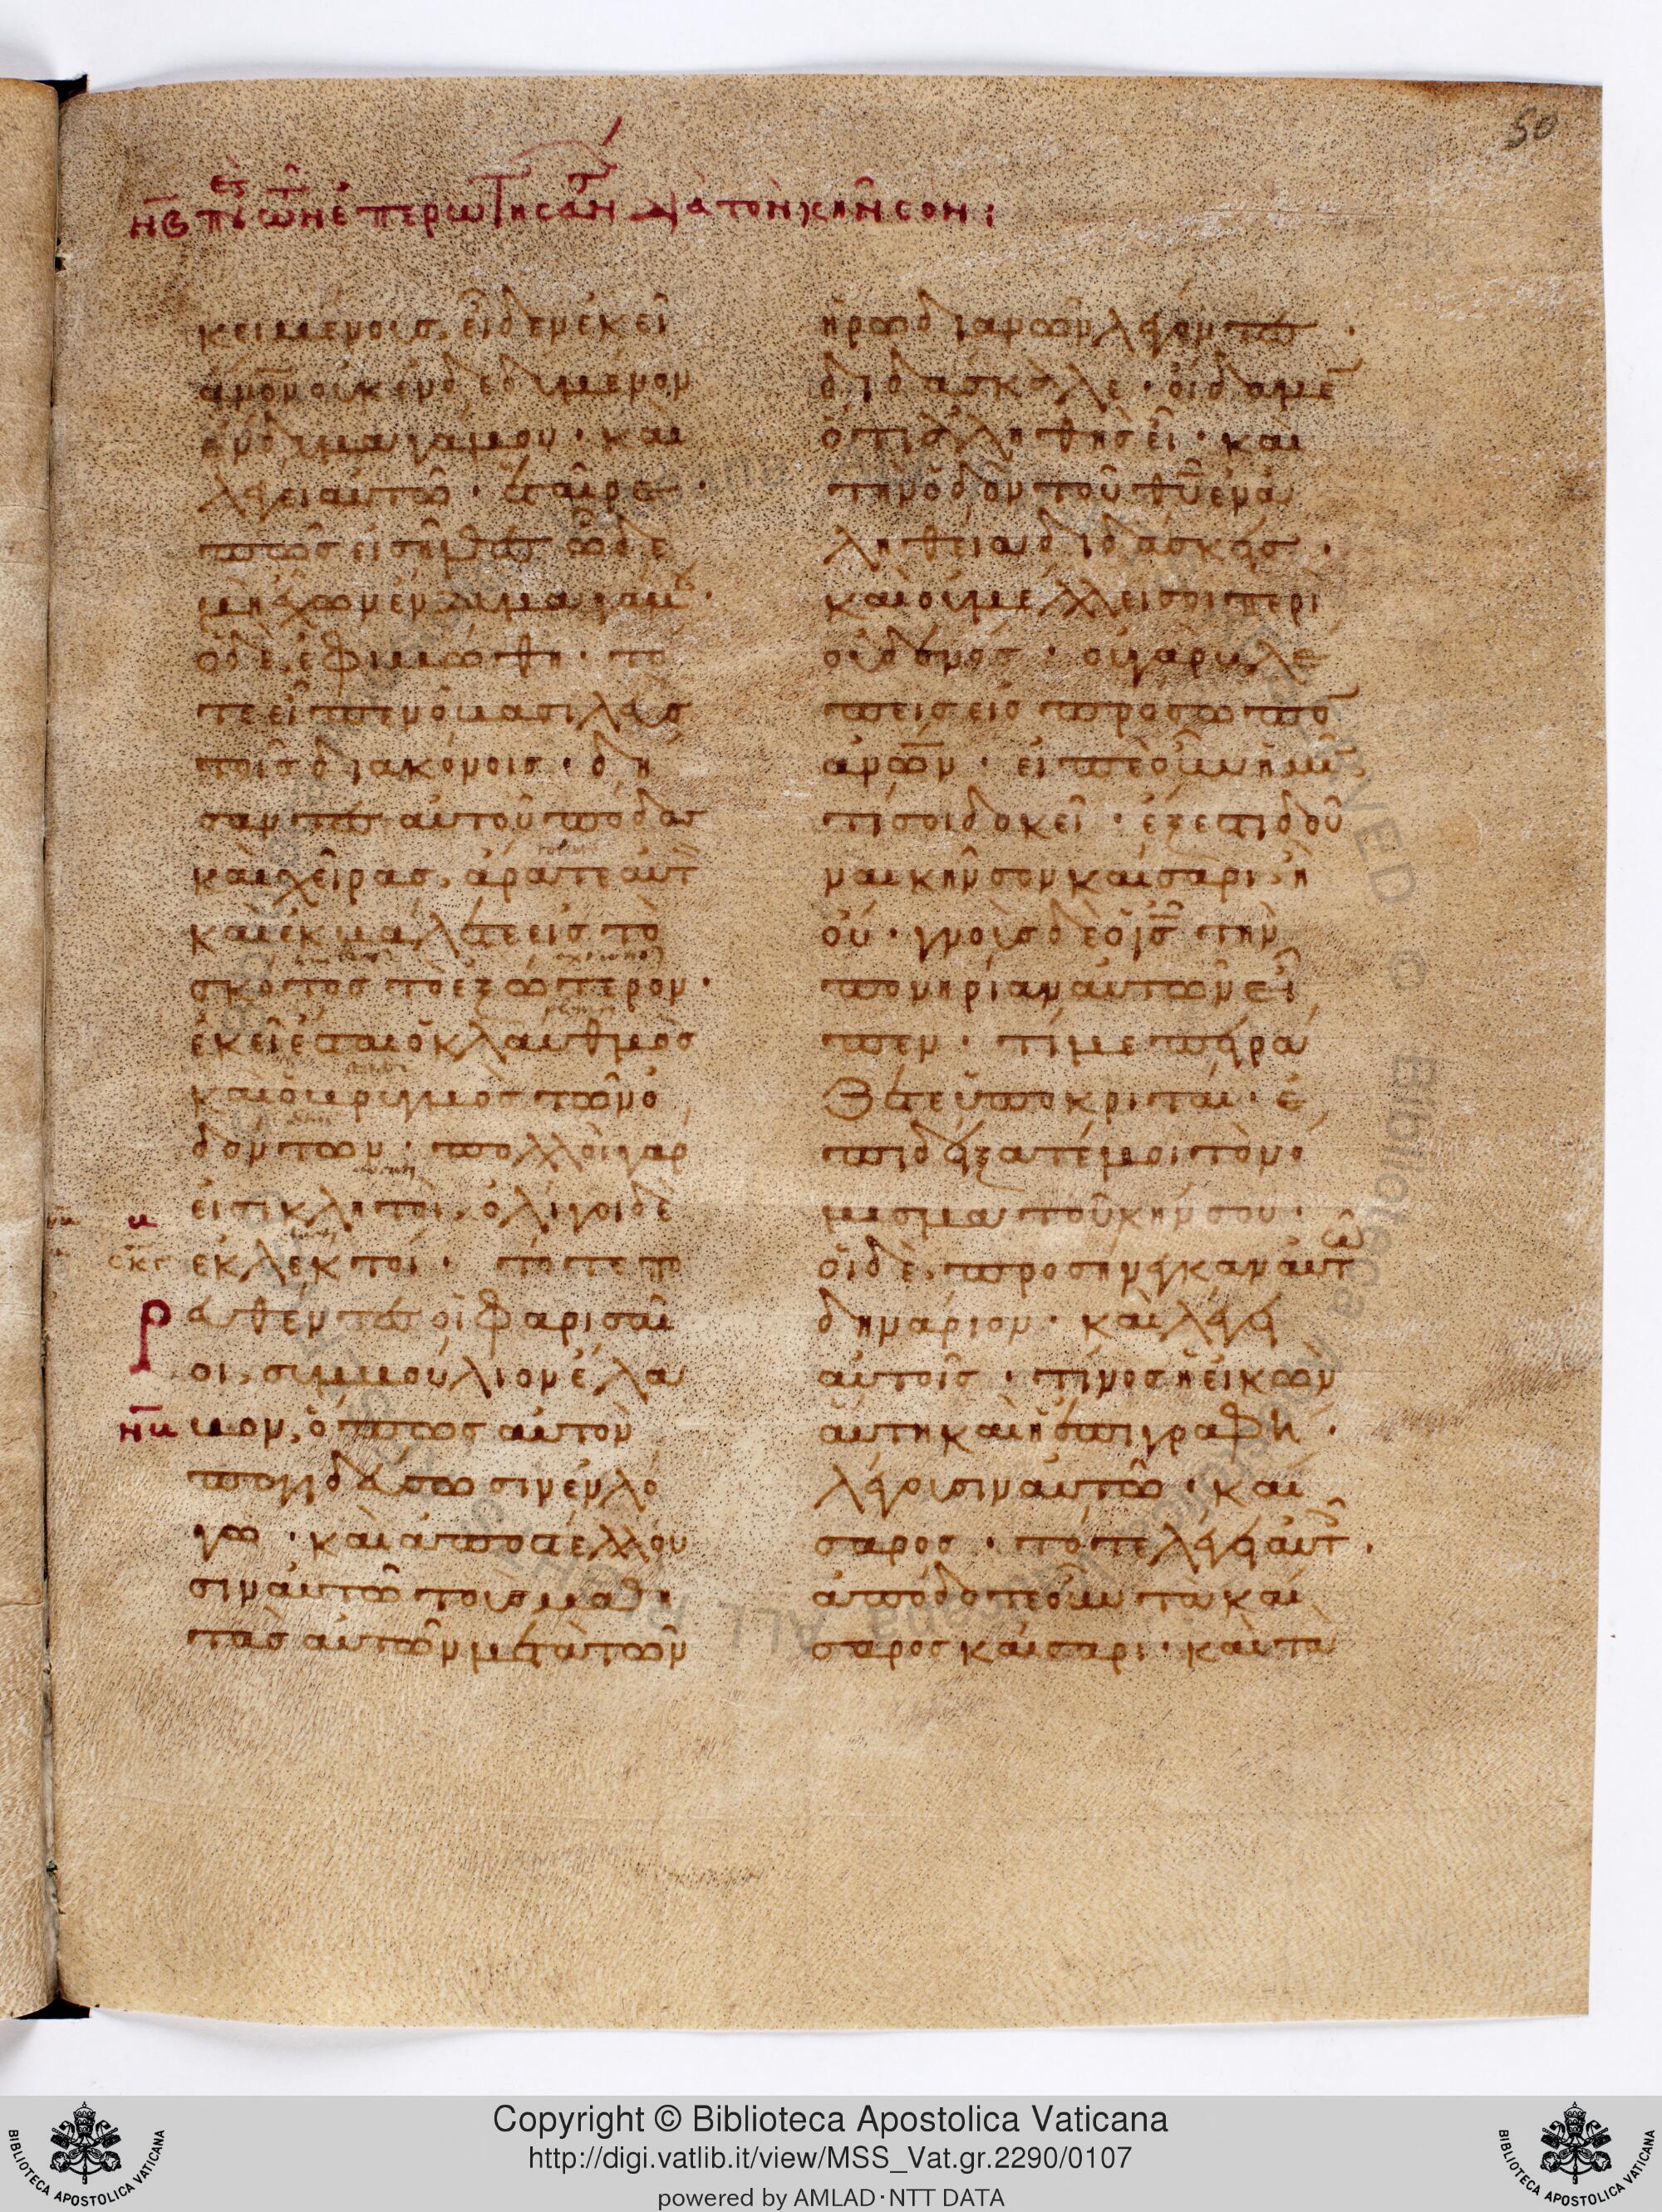 50
ν̅β̅ πε̅ τω̅ν ἐπερωτησάντ̅ν̅ διὰ τὸν κῆνσον:
κειμένους, εἶδεν ἐκεῖ
ἀνο̅ν οὐκ ἐνδεδυμένον
ἔνδυμα γάμου· καὶ
λέγει αὐτῶ· ἑταῖρε·
πῶς εἰσῆλθες ὧδε
μὴ ἔχων ἔνδυμα γάμου·
ὁ δὲ, ἐφιμώθη· τό
τε εἶπεν ὁ βασιλεὺς
τοῖς διακόνοις· δή
σαντες αὐτοῦ πόδας
καὶ χεῖρας, ἄρατε αὐτ
καὶ ἐκβάλετε εἰς τὸ
σκότος τὸ ἐξώτερον·
ἐκεῖ ἔσται ὁ κλαυθμὸς
καὶ ὁ βρυγμὸς τῶν ὀ
δόντων· πολλοὶ γάρ
εἰσι κλητοὶ, ὀλίγοι δὲ
ἐκλεκτοί· τότε πο
ρευθέντες οἱ φαρισαῖ
οι, συμβούλιον ἔλα
ν̅β̅ βον, ὅπως αὐτὸν
παγιδεύσωσιν ἐν λό
γω· καὶ ἀποστέλλου
σιν αὐτῶ τοὺς μαθη
τὰς αὐτῶν μετὰ τῶν
ἡρωδιανῶν λέγοντες·
διδάσκαλε· οἴδαμε̅
ὅτι ἀληθὴς εἶ· καὶ
τὴν ὁδὸν τοῦ θυ̅ ἐν ἀ
ληθεία διδάσκεις·
καὶ οὐ μέλλει σοι περὶ
οὐδενός· οὐ γὰρ βλέ
πεις εἰς πρόσωπο̅
ἀνω̅ν· εἰπὲ οὖν ἡμῖ̅
τί σοι δοκεῖ· ἔξεστι δοῦ
ναι κῆνσον καίσαρι, ἢ
οὔ· γνοὺς δὲ ὁ ις̅ τὴν
πονηρίαν αὐτῶν εἶ
πεν· τί με πειρά
ζετε ὑποκριταί· ἐ
πιδείξατέ μοι τὸ νό
μισμα τοῦ κήνσου·
οἱ δὲ, προσήνεγκαν αὐτῶ
δηνάριον· καὶ λέγει
αὐτοῖς· τίνος ἡ εἰκὼν
αὕτη καὶ ἡ ἐπιγραφή·
λέγουσιν αὐτῶ· καί
σαρος· τότε λέγει αὐτ·
ἀπόδοτε οὖν τὰ καί
σαρος καίσαρι· καὶ τὰ
Copyright © Biblioteca Apostolica Vaticana
http://digi.vatlib.it/view/MSS_Vat.gr.2290/0107
powered by AMLAD·NTT DATA
BIBLIOTECA APOSTOLICA VATICANA
BIBLIOTECA APOSTOLICA VATICANA